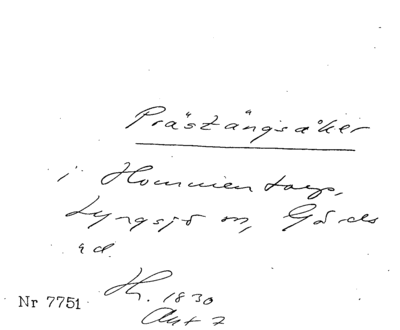 Prästängsåker
i Hommentorp,
Lyngsjö sn, Gärds
hd.
Nr 7751
Hh. 1830
Akt 7